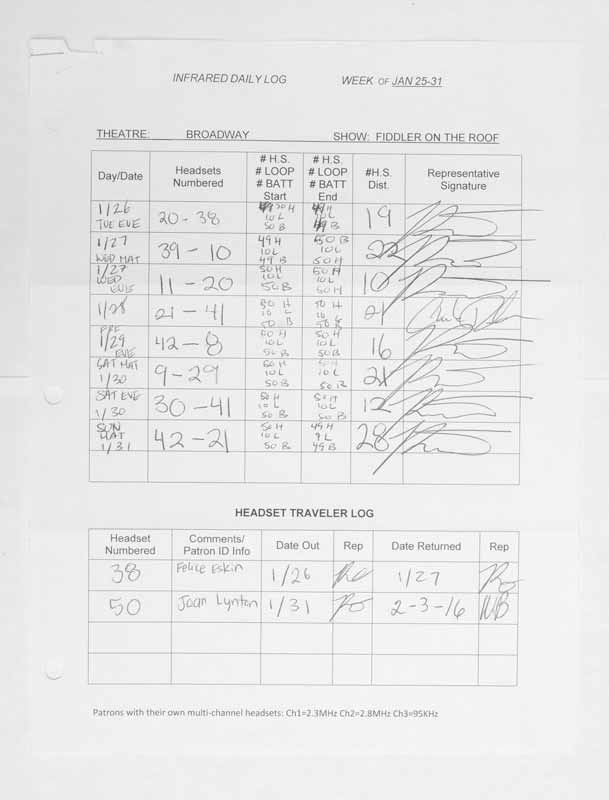 INFRARED DAILY LOG WEEK OF JAN 25-31
THEATRE: BROADWAY SHOW: FIDDLER ON THE ROOF
Day/Date
Headsets Numbered
# H.S. # LOOP # BATT Start
# H.S. # LOOP # BATT End
#H.S. Dist.
Representative Signature
1/26 TUE EVE 20-38 10L 50B 49H 10L 49B 19
1/27 WED MAT 39-10 49H 10L 49B 50B 10L 50H 22
1/27 WED EVE 11-20 50H 10L 50B 50H 10L 50H 10
1/28 21-41 50H 10L 50B 50H 10L 50B 21
FRI 1/29 EVE 42-8 50H 10L 50B 50H 10L 50B 16
SAT MAT 1/30 9-29 50H 10L 50B 50H 10L 50B 21
SAT EVE 1/30 30-41 50H 10L 50B 50H 10L 50B 12
SUN MAT 1/31 42-21 50H 10L 50B 49H 9L 49B 28
HEADSET TRAVELER LOG
Headset Numbered
Comments/ Patron ID Info
Date Out
Rep
Date Returned
Rep
38 Felice Eskin 1/26 1/27
50 Joan Lynton 1/31 2-3-16
Patrons with their own multi-channel headsets: Ch1=2.3MHz Ch2=2.8MHz Ch3=95KHz